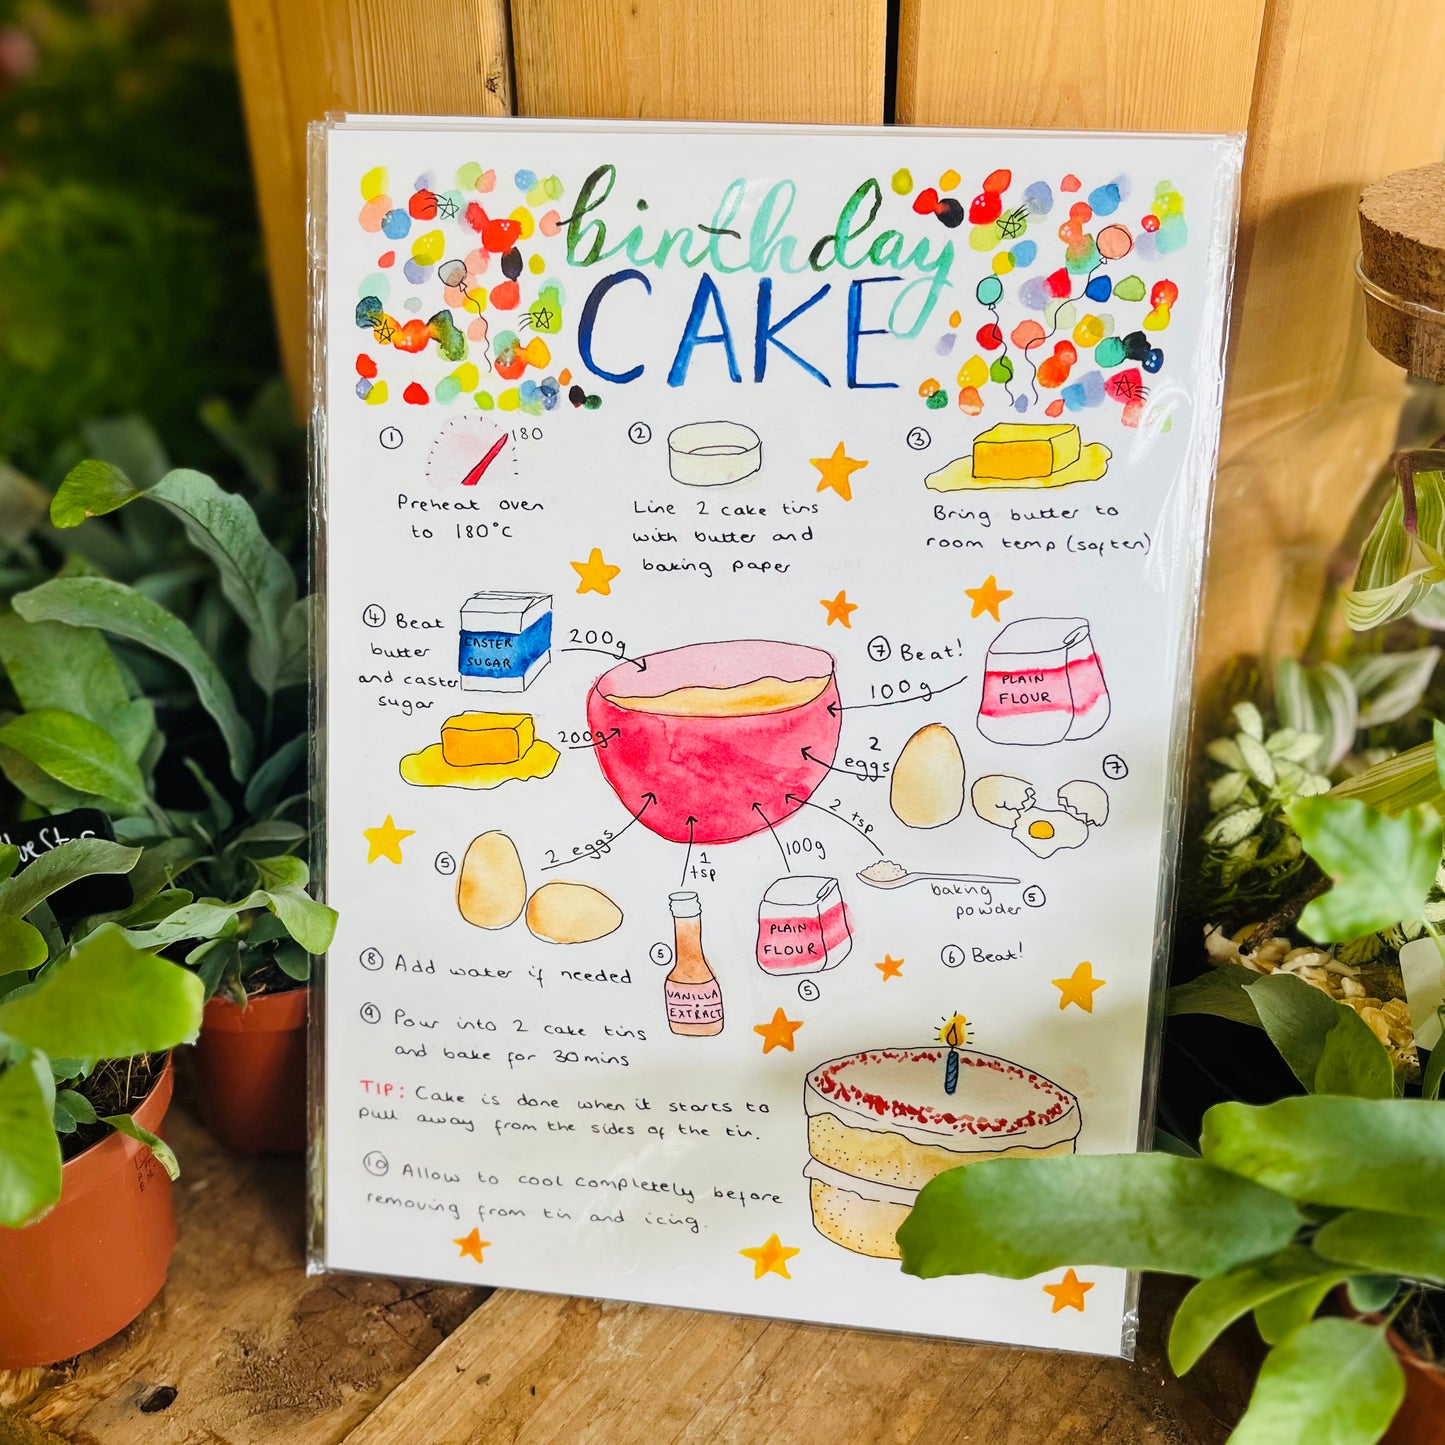 birthday
CAKE
1
180
Preheat oven
to 180°C
2
Line 2 cake tins
with butter and
baking paper
3
Bring butter to
room temp (soften)
4 Beat
butter
and caster
sugar
CASTER
SUGAR
200g
200g
7 Beat!
100g
PLAIN
FLOUR
2
eggs
7
5
2 eggs
1
tsp
5
VANILLA
EXTRACT
100g
PLAIN
FLOUR
5
2
tsp
baking
powder
5
6 Beat!
8 Add water if needed
9 Pour into 2 cake tins
and bake for 30mins
TIP: Cake is done when it starts to
pull away from the sides of the tin.
10 Allow to cool completely before
removing from tin and icing.